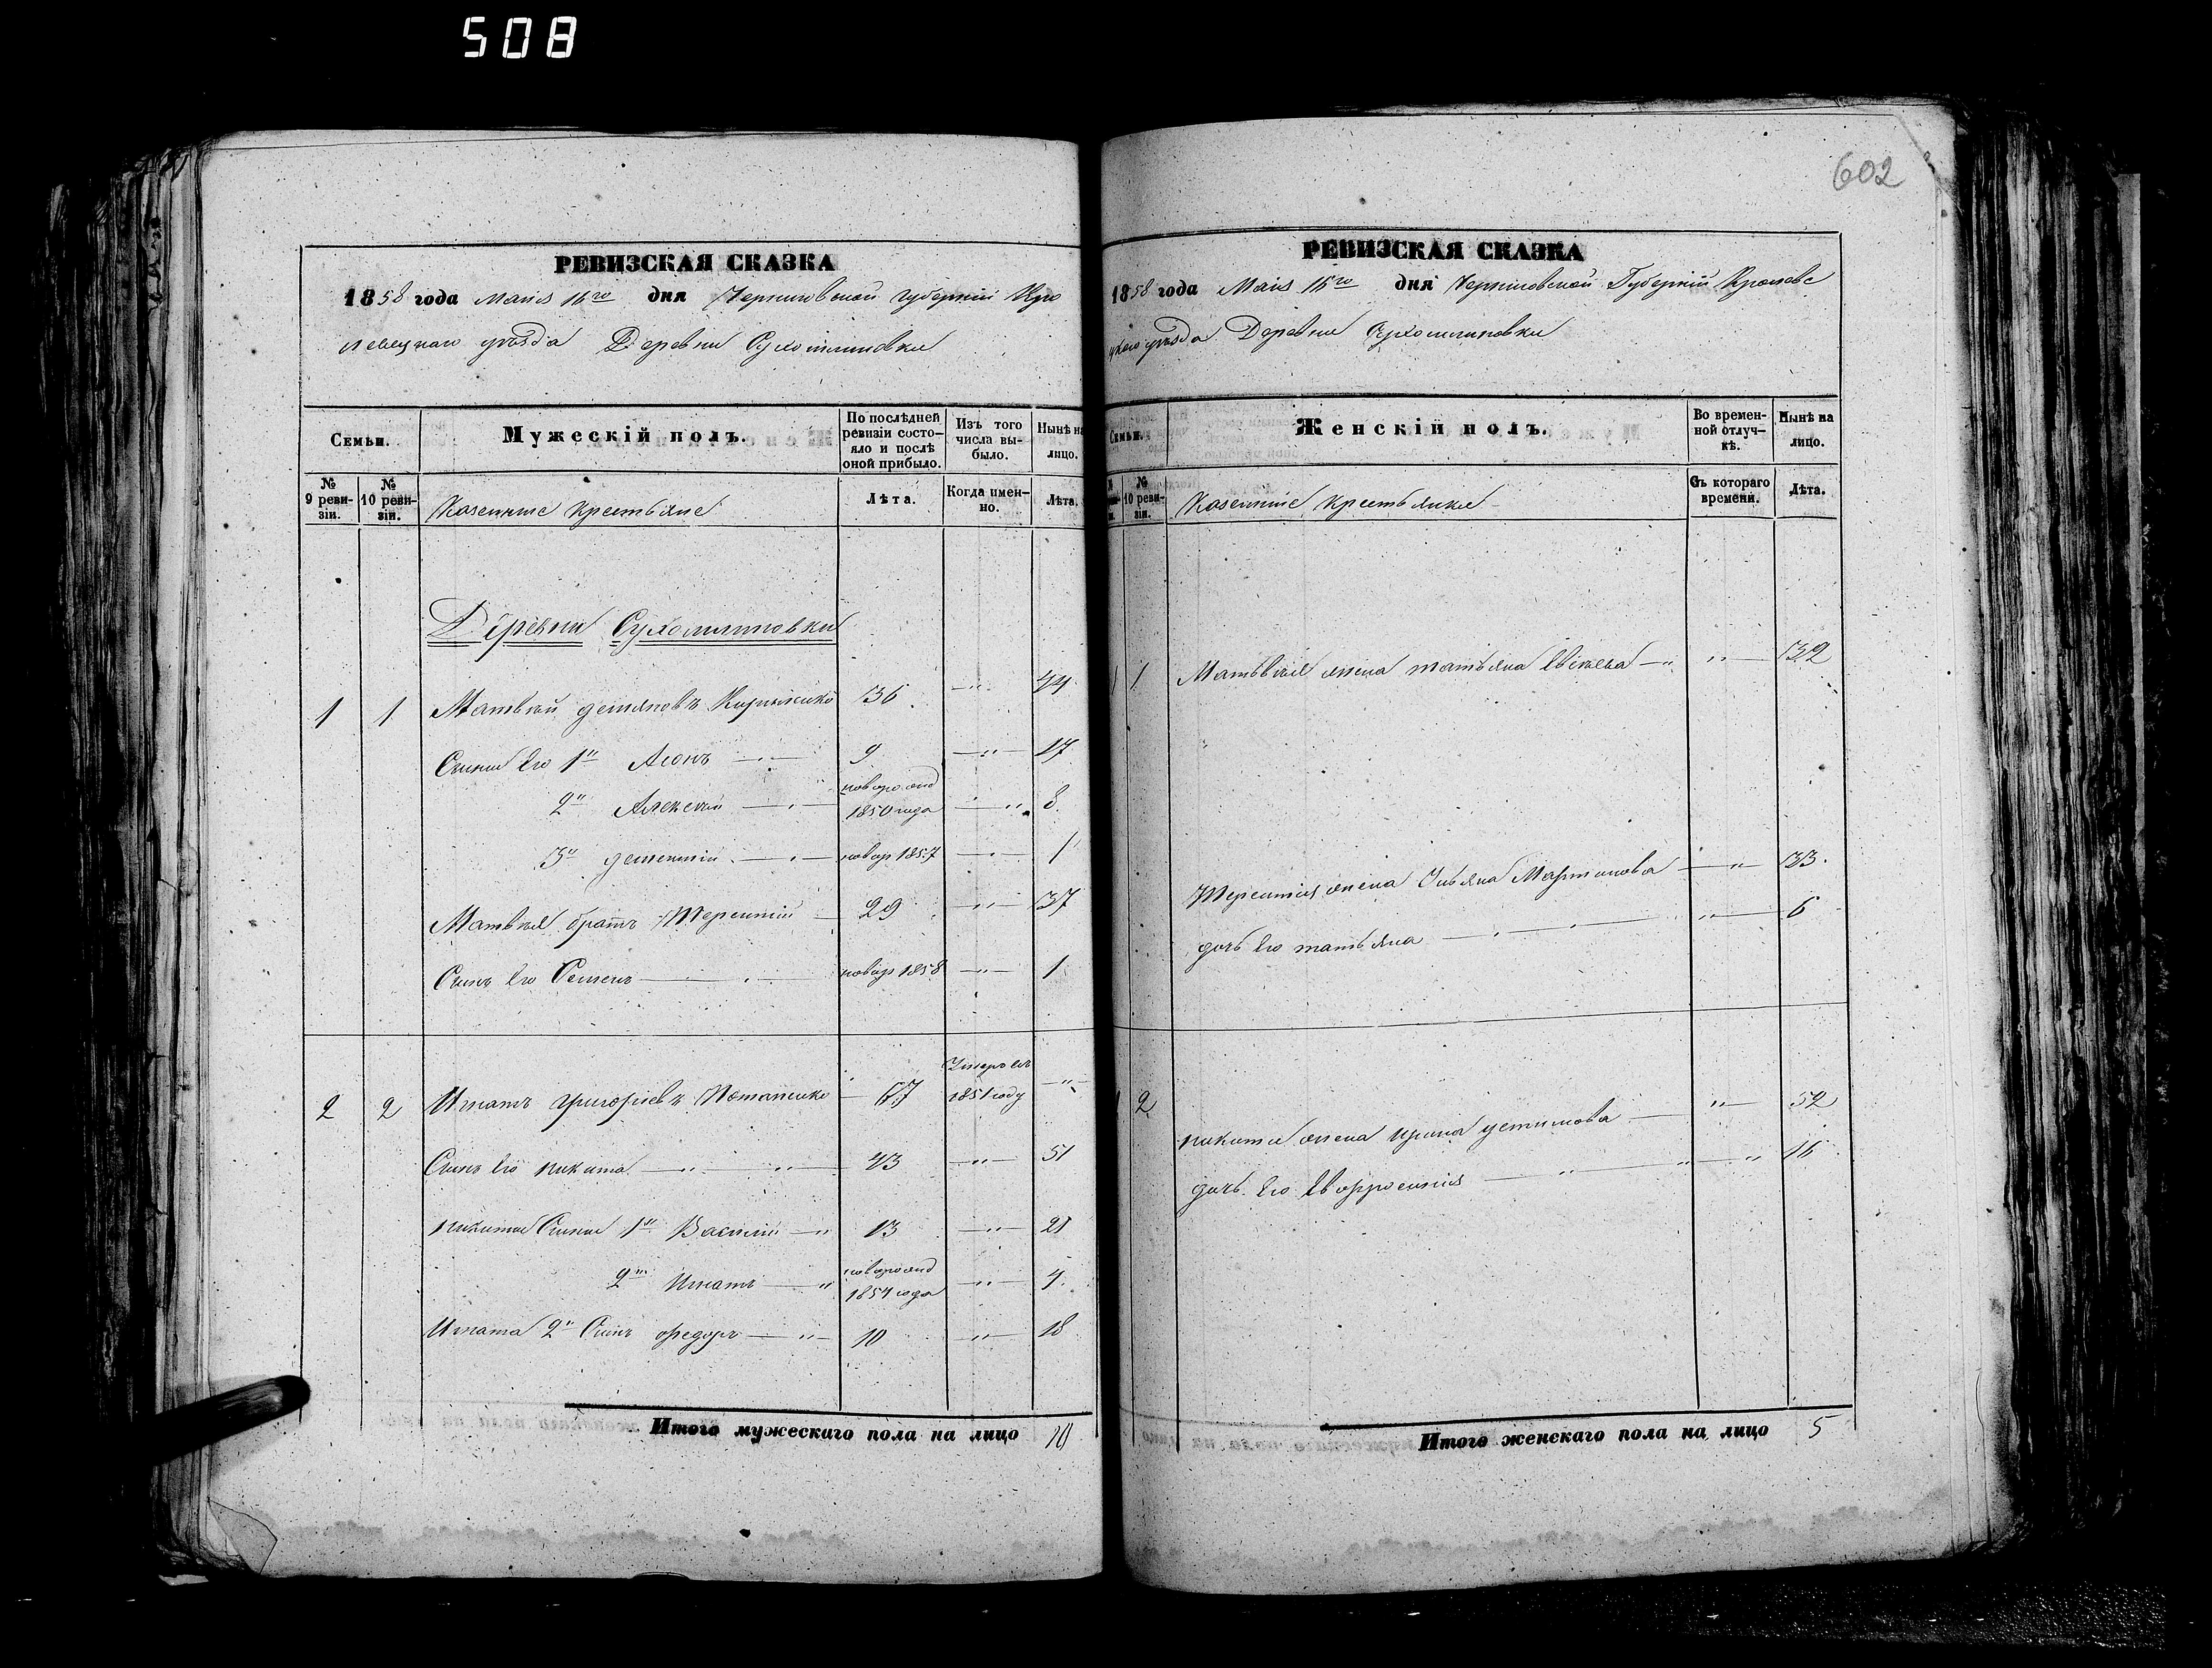 508
602
РЕВИЗСКАЯ СКАЗКА
1858 года Маія 15го дня Черниговской губерніи Кро
левецкаго уѣзда Деревни Сухомлиновки
Семьи.
Мужескій полъ.
По послѣдней ревизіи состо-
яло и послѣ оной прибыло.
Изъ того числа вы-
было.
Нынѣ на лицо.
№ 9 реви-
зіи.
№ 10 реви-
зіи.
Казенные крестьяне
Лѣта.
Когда имен-
но.
Лѣта.
Деревни Сухомлиновки
1 1 Матвѣй демяновъ 36 —"— 44
Сыны его 1й 9 —"— 17
2й Алексѣй —"— новорожд 1850 года —"— 8
3й дементій —"— новор 1857 —"— 1
Матвѣя братъ Терентій 29 —"— 37
Сынъ его Семенъ —"— новор 1858 —"— 1
2 2 Игнатъ григоріевъ Потапенко 67 Умеръ 1851 году —"—
Сынъ его никита —"— 43 —"— 51
никиты Сыны 1й Василій —"— 13 —"— 21
2й Игнатъ —"— новорожд 1854 года —"— 4
Игната 2й Сынъ федоръ —"— 10 —"— 18
Итого мужескаго пола на лицо 10
РЕВИЗСКАЯ СКАЗКА
1858 года Маія 15го дня Черниговской Губерніи Кролеве
цкаго уѣзда Деревни Сухомлиновки
Семьи.
Женскій полъ.
Во времен-
ной отлуч-
кѣ.
Нынѣ на лицо.
№ 10 реви-
зіи.
Казенные крестьянки
Съ котораго времени.
Лѣта.
1 1 Матвѣя жена татьяна —"— 32
Терентія жена Ульяна Мартинова —"— 33
дочь его татьяна —"— 6
2 никиты жена ирина устимова —"— 52
дочь его Евфросинія —"— 16
Итого женскаго пола на лицо 5